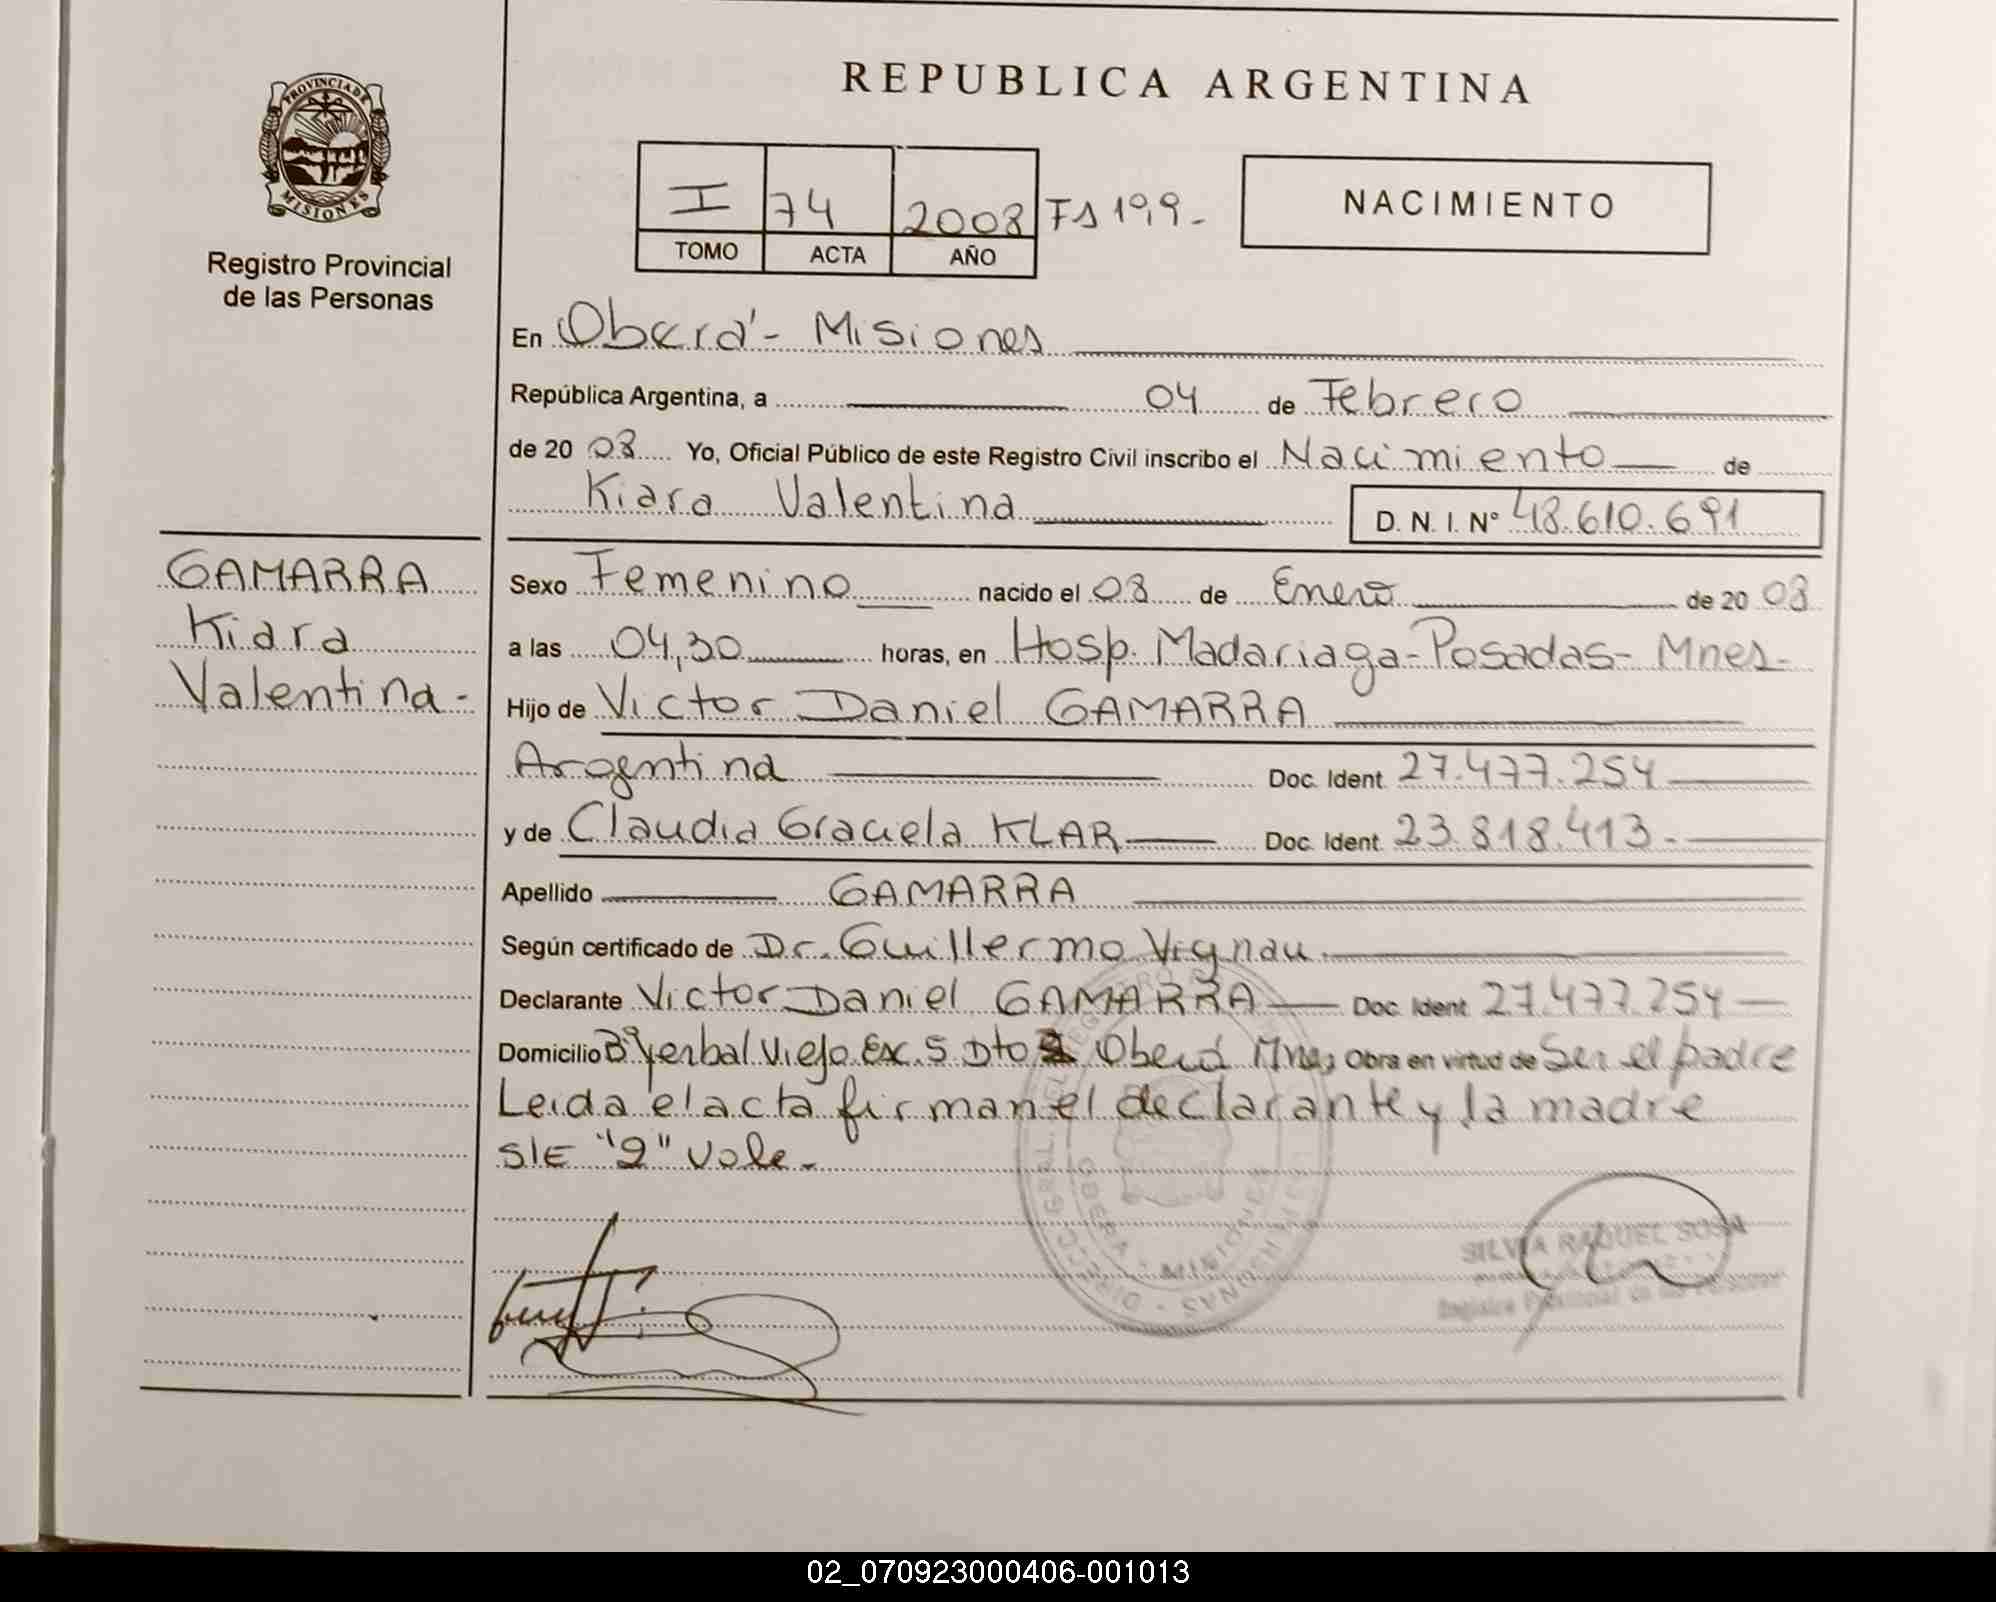 REPUBLICA ARGENTINA
PROVINCIA DE
MISIONES
Registro Provincial
de las Personas
I 74 2008 Fs 199-
TOMO ACTA AÑO
NACIMIENTO
En Oberá - Misiones
República Argentina, a 04 de Febrero
de 20 08 Yo, Oficial Público de este Registro Civil inscribo el Nacimiento de
Kiara Valentina D. N. I. N° 48.610.691
GAMARRA
Kiara
Valentina -
Sexo Femenino nacido el 08 de Enero de 20 08
a las 04,30 horas, en Hosp. Madariaga - Posadas - Mnes-
Hijo de Victor Daniel GAMARRA
Argentina Doc. Ident. 27.477.254
y de Claudia Graciela KLAR Doc. Ident. 23.818.413.-
Apellido GAMARRA
Según certificado de Dr. Guillermo Vignau
Declarante Victor Daniel GAMARRA Doc. Ident. 27.477.254
Domicilio B° Yerbal Viejo Ex. 5 Dto 2 Oberá Mnes Obra en virtud de Ser el padre
Leida el acta firman el declarante y la madre
S/E "2" Vale.-
OBERA - MISIONES
SILVIA RAQUEL SOSA
Registro Provincial de las Personas
02_070923000406-001013